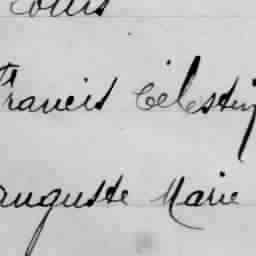 Louis
Francis Célestin
Auguste Marie